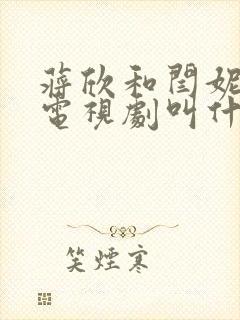 蔣欣和閆妮
電視劇叫什
笑煙寒